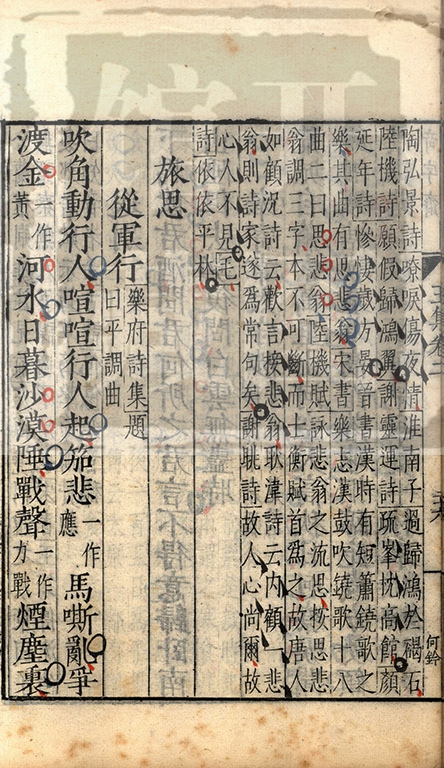 陶弘景詩嘹唳傷夜清淮南子過歸鴻於碣石
陸機詩願假歸鴻翼謝靈運詩疏峯忱高館顏
延年詩慘悽歲方晏晉書漢時有短簫鐃歌之
樂其曲有思悲翁宋書樂志漢鼓吹鐃歌十八
曲二曰思悲翁陸機賦詠悲翁之流思按思悲
翁調三字本不可斷而士衡賦首爲之故唐人
如顧況詩云歡言接悲翁耿湋詩云内顧一悲
翁則詩家遂爲常句矣謝朓詩故人心尚爾故
心人不見毛
詩依依平林
旅思
從軍行樂府詩集題曰平調曲
吹角動行人喧喧行人起笳悲一作應馬嘶亂爭
渡金一作黃河水日暮沙漠陲戰聲一作方戰煙塵裏
何鈐